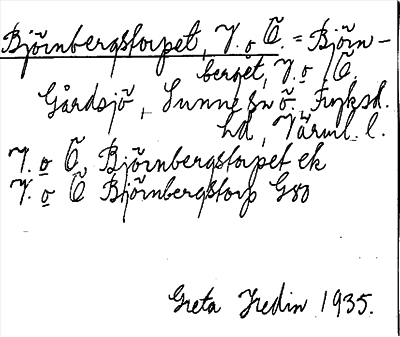 Björnbergstorpet, V. o Ö. = Björn-
berget, V. o Ö.
Gårdsjö, Sunne sn ö. Fryksd.
hd, Värml. l.
V. o Ö. Björnbergstorpet ek
V. o Ö Björnbergstorp GSO
Greta Hedin 1935.